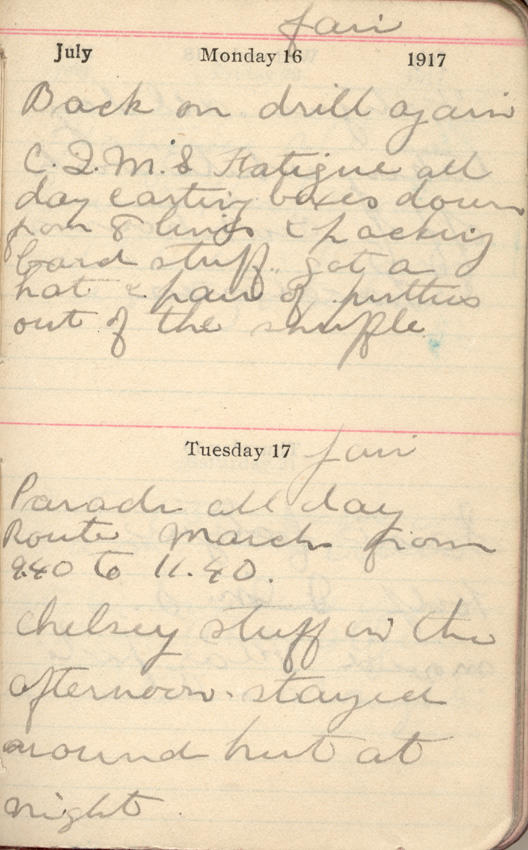 Fair
July Monday 16 1917
Back on drill again
C.Q.M.S Fatigue all
day carting boxes down
from 8 lines & packing
board stuff. got a
hat & pair of putties
out of the shuffle
Tuesday 17 Fair
Parade all day
Route March from
9.40 to 11.40.
Chelsey stuff in the
afternoon. stayed
around hut at
night